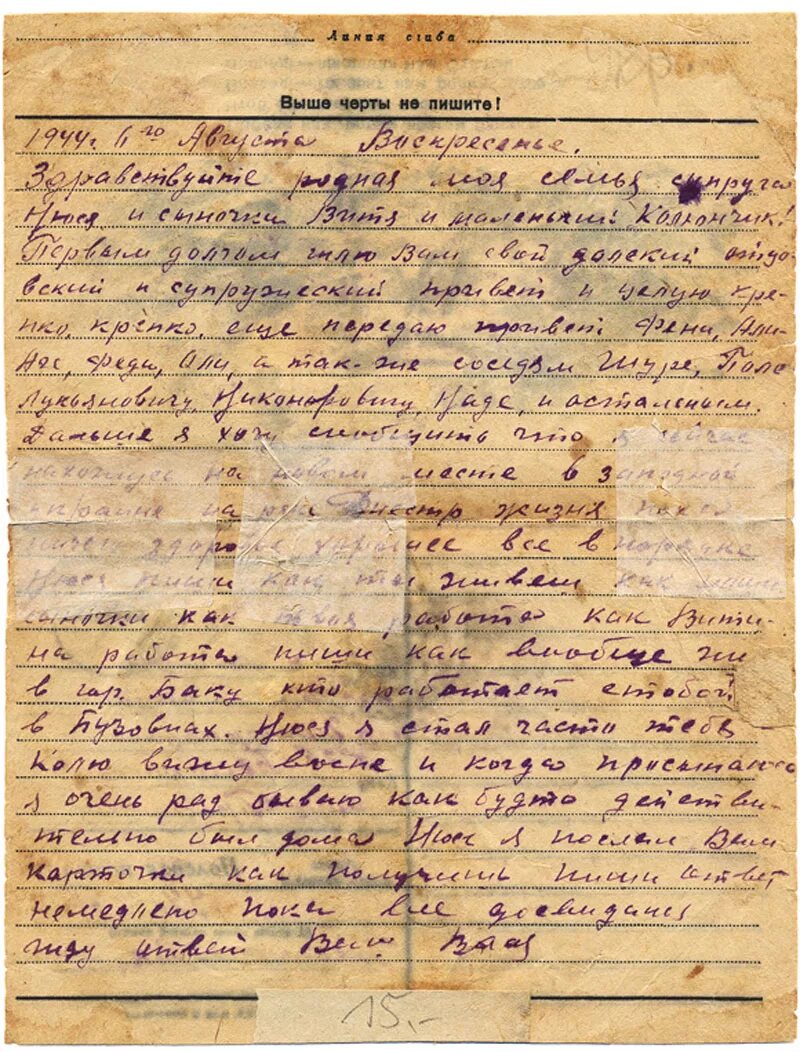 Линия сгиба
Выше черты не пишите!
1944г. 6го Августа Воскресенье.
Здравствуйте родная моя семья супруга
Нюся и сыночки Витя и маленький Колюнчик!
Первым долгом шлю Вам свой далский отцо-
вский и супружеский привет и целую кре-
пко, крепко, еще передаю привет Фени,
Феди, Оли, а так-же соседям Шуре, Поле
Лукьяновичу, Никоноровичу, Наде, и осталеным.
Дальше я хочу сообщить что я сейчас
нахожусь на новом месте в западной
украине на реки Днестр жизня
здоровье хорошее все в порядке
Нюся пиши как ты живеш как
сыночки как твоя работа как Витин-
на работа пиши как вообще жи
в гор. Баку кто работает стобой
в Бузовнах. Нюся я стал часто тебя
Колю вижу восне и когда просыпаюсь
я очень рад бываю как будто действи-
тельно был дома Нюся я послал Вам
карточки как получишь пиши ответ
немедлено пока все досвидания
жду ответ Ваш
15.-